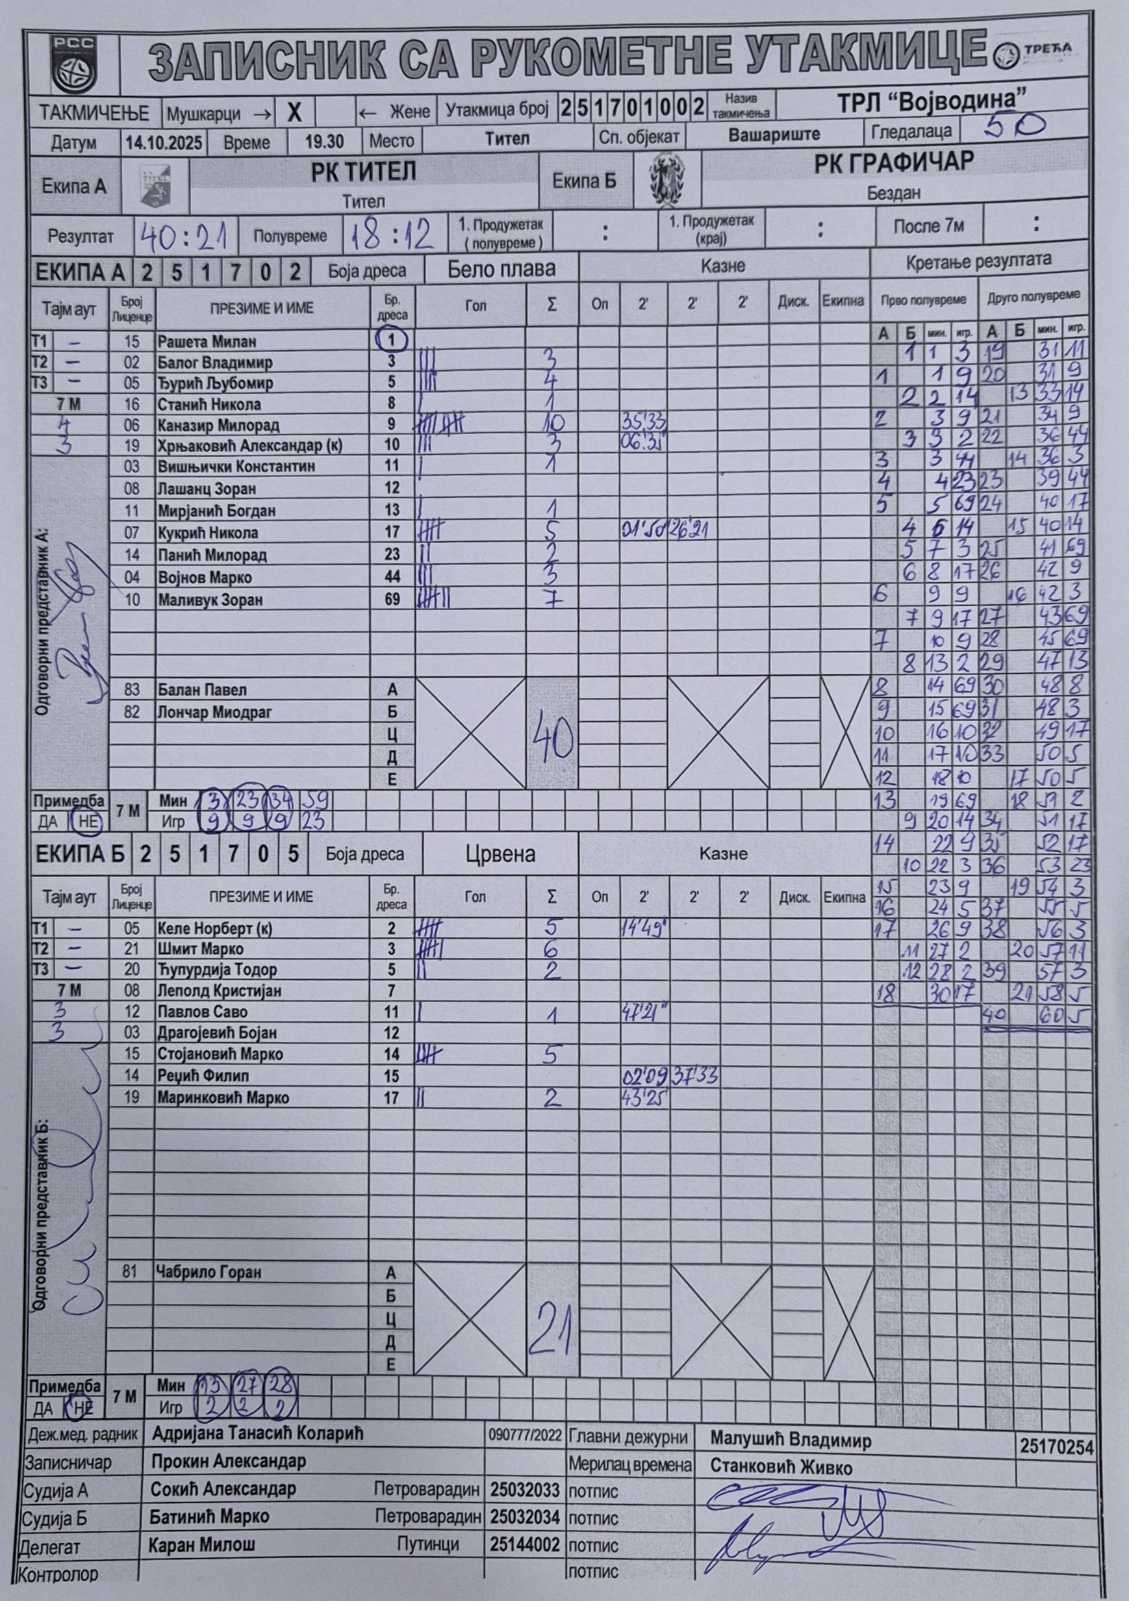 РСС
ЗАПИСНИК СА РУКОМЕТНЕ УТАКМИЦЕ ТРЕЋА
ТАКМИЧЕЊЕ Мушкарци → X ← Жене Утакмица број 2 5 1 7 0 1 0 0 2 Назив такмичења ТРЛ “Војводина”
Датум 14.10.2025 Време 19.30 Место Тител Сп. објекат Вашариште Гледалаца 50
Екипа А РК ТИТЕЛ Тител Екипа Б РК ГРАФИЧАР Бездан
Резултат 40:21 Полувреме 18:12 1. Продужетак (полувреме) : 1. Продужетак (крај) : После 7м :
ЕКИПА А 2 5 1 7 0 2 Боја дреса Бело плава Казне Кретање резултата
Тајм аут Број Лиценце ПРЕЗИМЕ И ИМЕ Бр. дреса Гол Σ Оп 2' 2' 2' Диск. Екипна Прво полувреме Друго полувреме
А Б мин. игр. А Б мин. игр.
Т1 – 15 Рашета Милан 1
1 1 3 19 31 11
Т2 – 02 Балог Владимир 3 3
1 1 9 20 31 9
Т3 – 05 Ђурић Љубомир 5 4
2 2 14 13 33 14
7 М 16 Станић Никола 8 1
2 3 9 21 34 9
4 06 Каназир Милорад 9 10 35'33
3 3 2 22 36 44
3 19 Хрњаковић Александар (к) 10 3 06:31
3 3 11 14 36 3
03 Вишњички Константин 11 1
4 4 23 23 39 44
08 Лашанц Зоран 12
5 5 69 24 40 17
11 Мирјанић Богдан 13 1
4 6 14 15 40 14
07 Кукрић Никола 17 5 01'50 26'21
5 7 3 25 41 69
14 Панић Милорад 23 2
6 8 17 26 42 9
04 Војнов Марко 44 3
6 9 9 16 42 3
10 Маливук Зоран 69 7
7 9 17 27 43 69
7 10 9 28 45 69
8 13 2 29 47 13
Одговорни представник А:
83 Балан Павел А
8 14 69 30 48 8
82 Лончар Миодраг Б
9 15 69 31 48 3
Ц 40
10 16 10 32 49 17
Д
11 17 10 33 50 5
Е
12 18 10 17 50 5
Примедба 7 М Мин 3 23 34 59
13 19 69 18 51 2
ДА НЕ Игр 9 9 9 23
9 20 14 34 51 17
ЕКИПА Б 2 5 1 7 0 5 Боја дреса Црвена Казне
14 22 9 35 52 17
10 22 3 36 53 23
Тајм аут Број Лиценце ПРЕЗИМЕ И ИМЕ Бр. дреса Гол Σ Оп 2' 2' 2' Диск. Екипна
15 23 9 19 54 3
16 24 5 37 55 5
Т1 – 05 Келе Норберт (к) 2 5 14'49"
17 26 9 38 56 3
Т2 – 21 Шмит Марко 3 6
11 27 2 20 57 11
Т3 – 20 Ћупурдија Тодор 5 2
12 28 2 39 57 3
7 М 08 Леполд Кристијан 7
18 30 17 21 58 5
3 12 Павлов Саво 11 1 47'21"
40 60 5
3 03 Драгојевић Бојан 12
15 Стојановић Марко 14 5
14 Реџић Филип 15 02'09 37'33
19 Маринковић Марко 17 2 43'25
Одговорни представник Б:
81 Чабрило Горан А
Б
Ц 21
Д
Е
Примедба 7 М Мин 13 27 28
ДА НЕ Игр 2 2 2
Деж.мед. радник Адријана Танасић Коларић 090777/2022 Главни дежурни Малушић Владимир 25170254
Записничар Прокин Александар Мерилац времена Станковић Живко
Судија А Сокић Александар Петроварадин 25032033 потпис
Судија Б Батинић Марко Петроварадин 25032034 потпис
Делегат Каран Милош Путинци 25144002 потпис
Контролор потпис